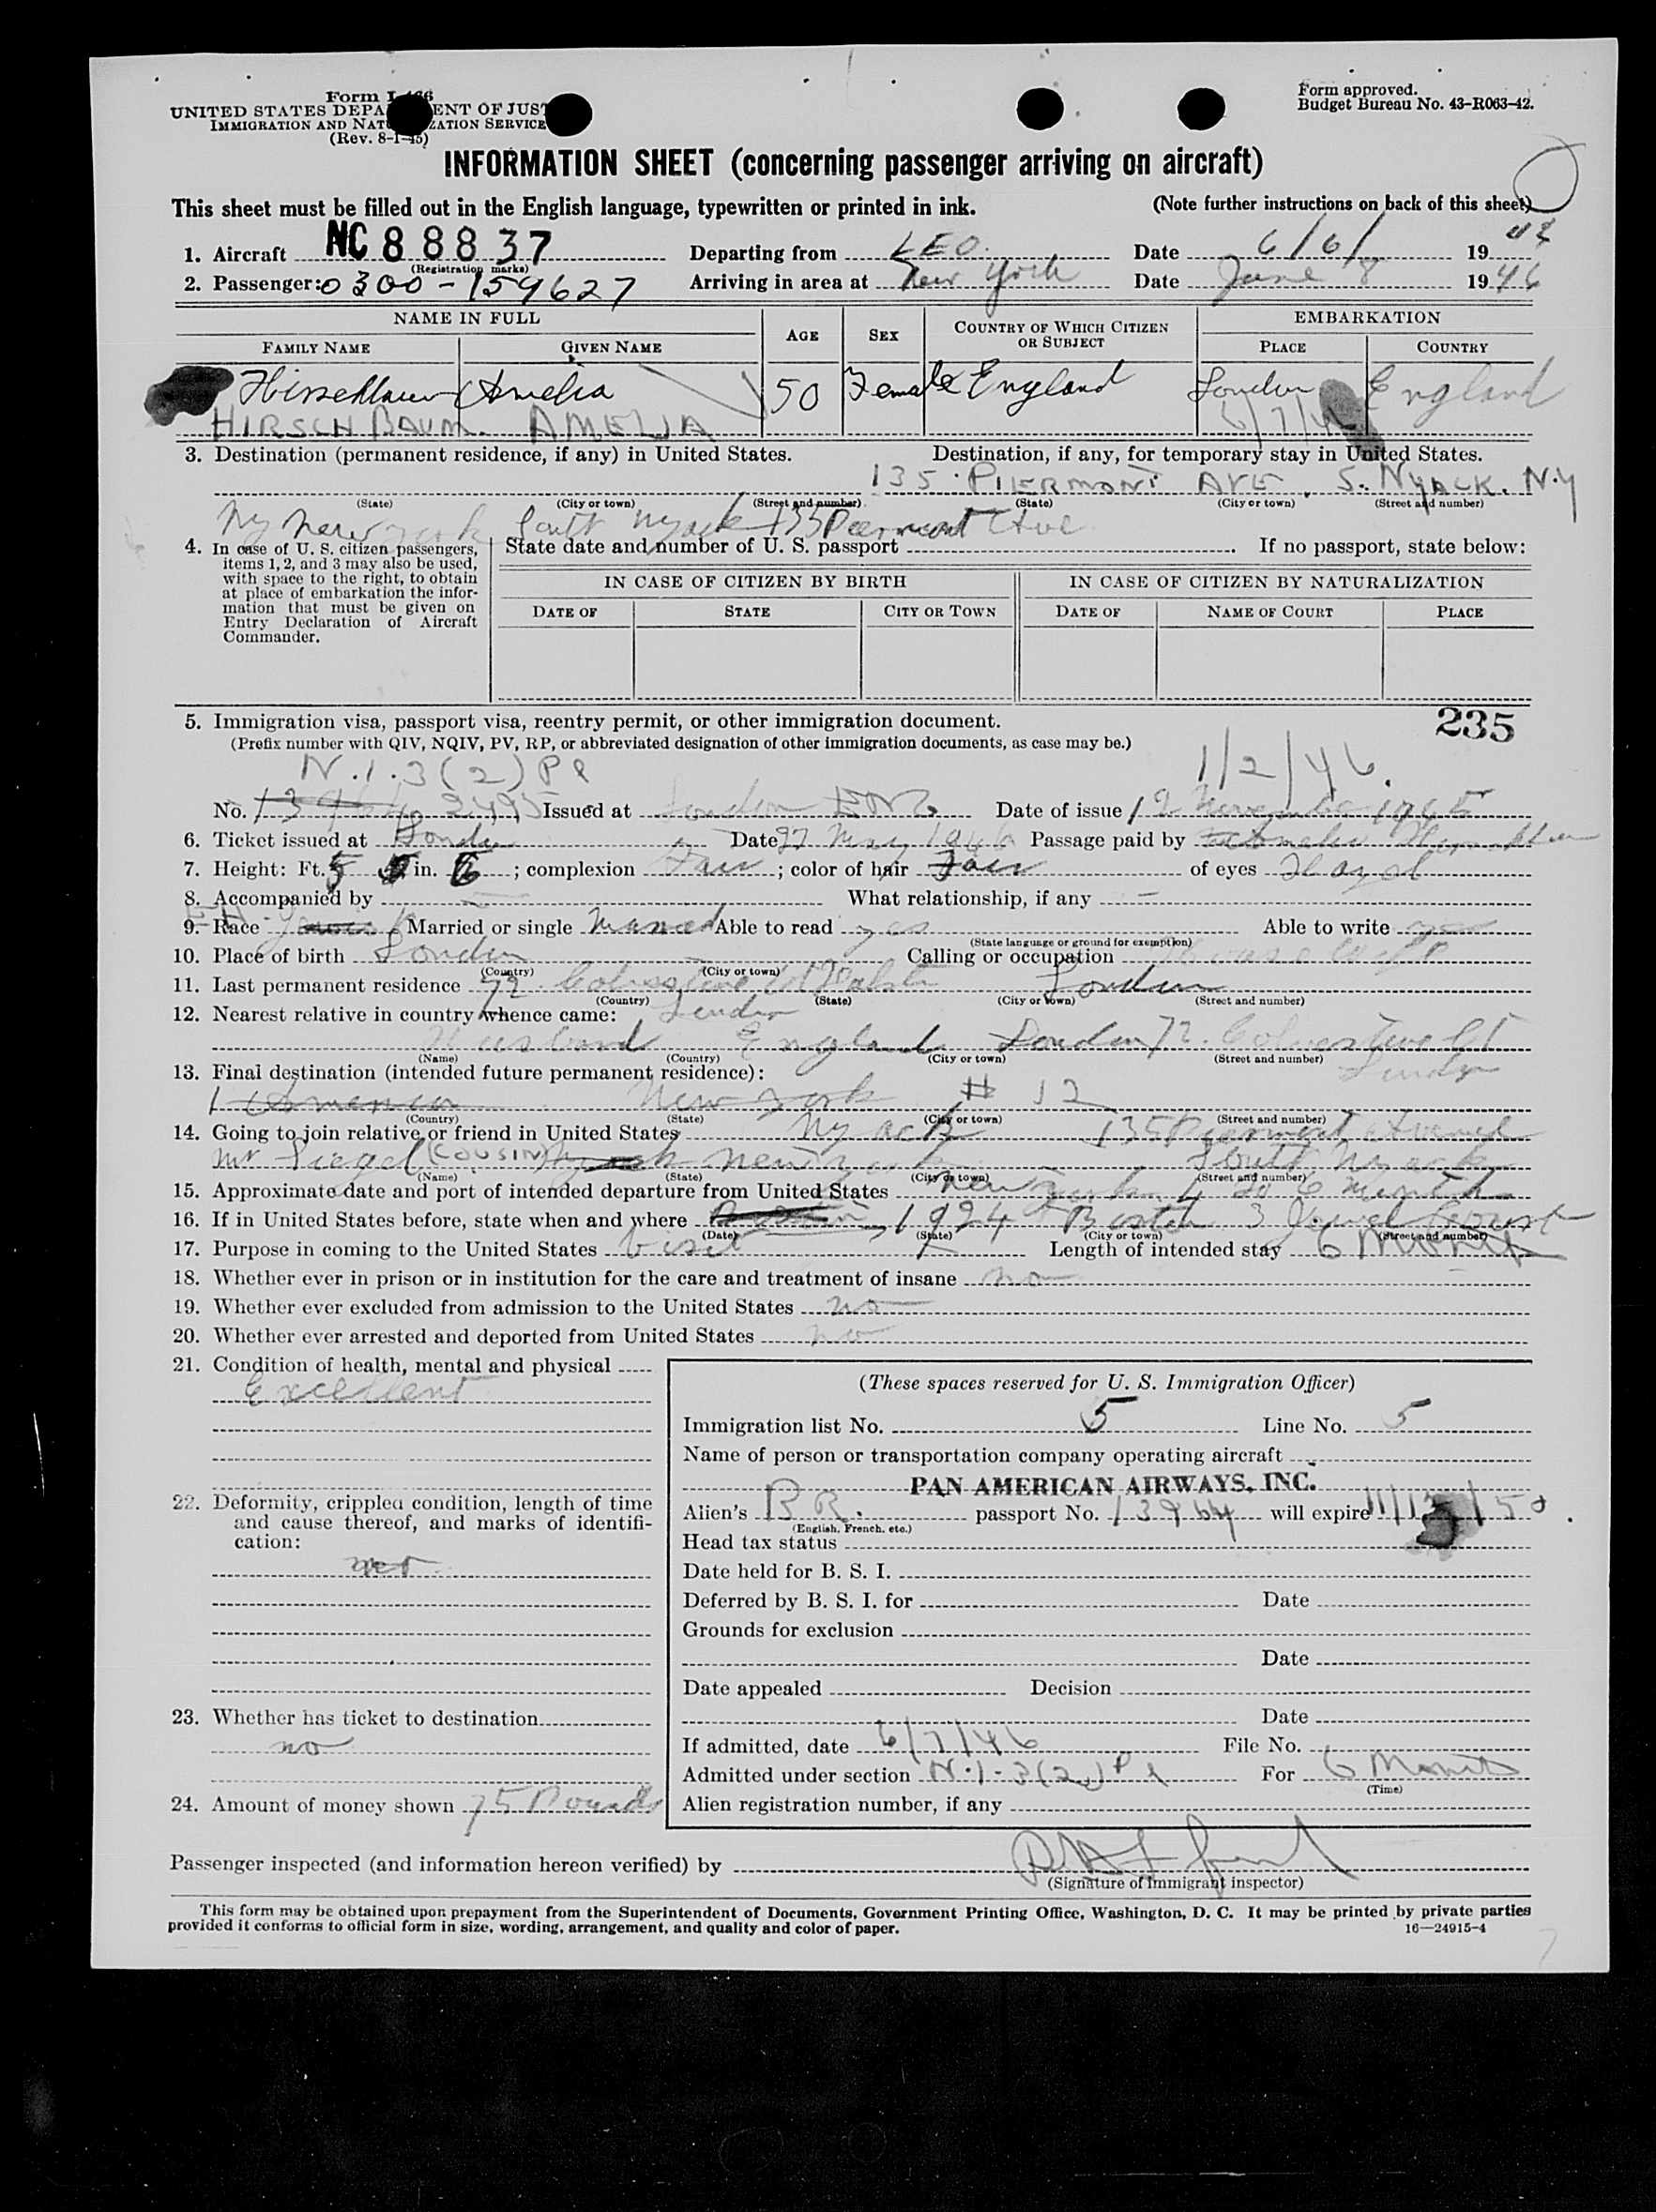 Form I-466
UNITED STATES DEPARTMENT OF JUSTICE
IMMIGRATION AND NATURALIZATION SERVICE
(Rev. 8-1-45)
Form approved.
Budget Bureau No. 43-R063-42.
INFORMATION SHEET (concerning passenger arriving on aircraft)
This sheet must be filled out in the English language, typewritten or printed in ink. (Note further instructions on back of this sheet)
1. Aircraft NC 88837 Departing from LEO. Date 6/6/ 19
(Registration marks)
2. Passenger: 0300-159627 Arriving in area at New York Date June 8 1946
NAME IN FULL AGE SEX COUNTRY OF WHICH CITIZEN OR SUBJECT EMBARKATION
FAMILY NAME GIVEN NAME PLACE COUNTRY
Amelia 50 Female England London England
HIRSCHBAUM. AMELIA 6/7/46
3. Destination (permanent residence, if any) in United States. Destination, if any, for temporary stay in United States.
135 PIERMONT AVE. S. NYACK. N.Y
(State) (City or town) (Street and number) (State) (City or town) (Street and number)
Ny New York South Nyack 135 Piermont Ave
4. In case of U. S. citizen passengers, items 1, 2, and 3 may also be used, with space to the right, to obtain at place of embarkation the information that must be given on Entry Declaration of Aircraft Commander.
State date and number of U. S. passport . If no passport, state below:
IN CASE OF CITIZEN BY BIRTH IN CASE OF CITIZEN BY NATURALIZATION
DATE OF STATE CITY OR TOWN DATE OF NAME OF COURT PLACE
235
5. Immigration visa, passport visa, reentry permit, or other immigration document.
(Prefix number with QIV, NQIV, PV, RP, or abbreviated designation of other immigration documents, as case may be.)
N.I.3(2) Pl 1/2/46.
No. 13964 2495 Issued at London ENG Date of issue 12 November 1945
6. Ticket issued at London Date 27 May 1946 Passage paid by
7. Height: Ft. 5 in. 6; complexion Fair; color of hair Fair of eyes Hazel
8. Accompanied by — What relationship, if any —
9. Race Married or single Married Able to read yes Able to write yes
(State language or ground for exemption)
10. Place of birth London Calling or occupation Housewife
(Country) (City or town)
11. Last permanent residence 72 London
(Country) (State) (City or town) (Street and number)
12. Nearest relative in country whence came: London
Husband England London 72
(Name) (Country) (City or town) (Street and number)
London
13. Final destination (intended future permanent residence):
America New York # 12
(Country) (State) (City or town) (Street and number)
14. Going to join relative or friend in United States Nyack 135 Piermont Avenue
Mr Siegel (COUSIN) New York South Nyack
(Name) (State) (City or town) (Street and number)
15. Approximate date and port of intended departure from United States New York 4 to 6 Month
16. If in United States before, state when and where 1924 Boston 3 Court
(Date) (State) (City or town) (Street and number)
17. Purpose in coming to the United States Visit Length of intended stay 6 Month
18. Whether ever in prison or in institution for the care and treatment of insane no
19. Whether ever excluded from admission to the United States no
20. Whether ever arrested and deported from United States no
21. Condition of health, mental and physical
Excellent
22. Deformity, crippled condition, length of time and cause thereof, and marks of identification:
no
23. Whether has ticket to destination
no
24. Amount of money shown 75 Pounds
(These spaces reserved for U. S. Immigration Officer)
Immigration list No. 5 Line No. 5
Name of person or transportation company operating aircraft
PAN AMERICAN AIRWAYS, INC.
Alien's BR. passport No. 13964 will expire 11/13/50.
(English, French, etc.)
Head tax status
Date held for B. S. I.
Deferred by B. S. I. for Date
Grounds for exclusion
Date
Date appealed Decision
Date
If admitted, date 6/7/46 File No.
Admitted under section N.I-3(2) Pl For 6 Months
(Time)
Alien registration number, if any
Passenger inspected (and information hereon verified) by
(Signature of immigrant inspector)
This form may be obtained upon prepayment from the Superintendent of Documents, Government Printing Office, Washington, D. C. It may be printed by private parties
provided it conforms to official form in size, wording, arrangement, and quality and color of paper. 16—24915-4